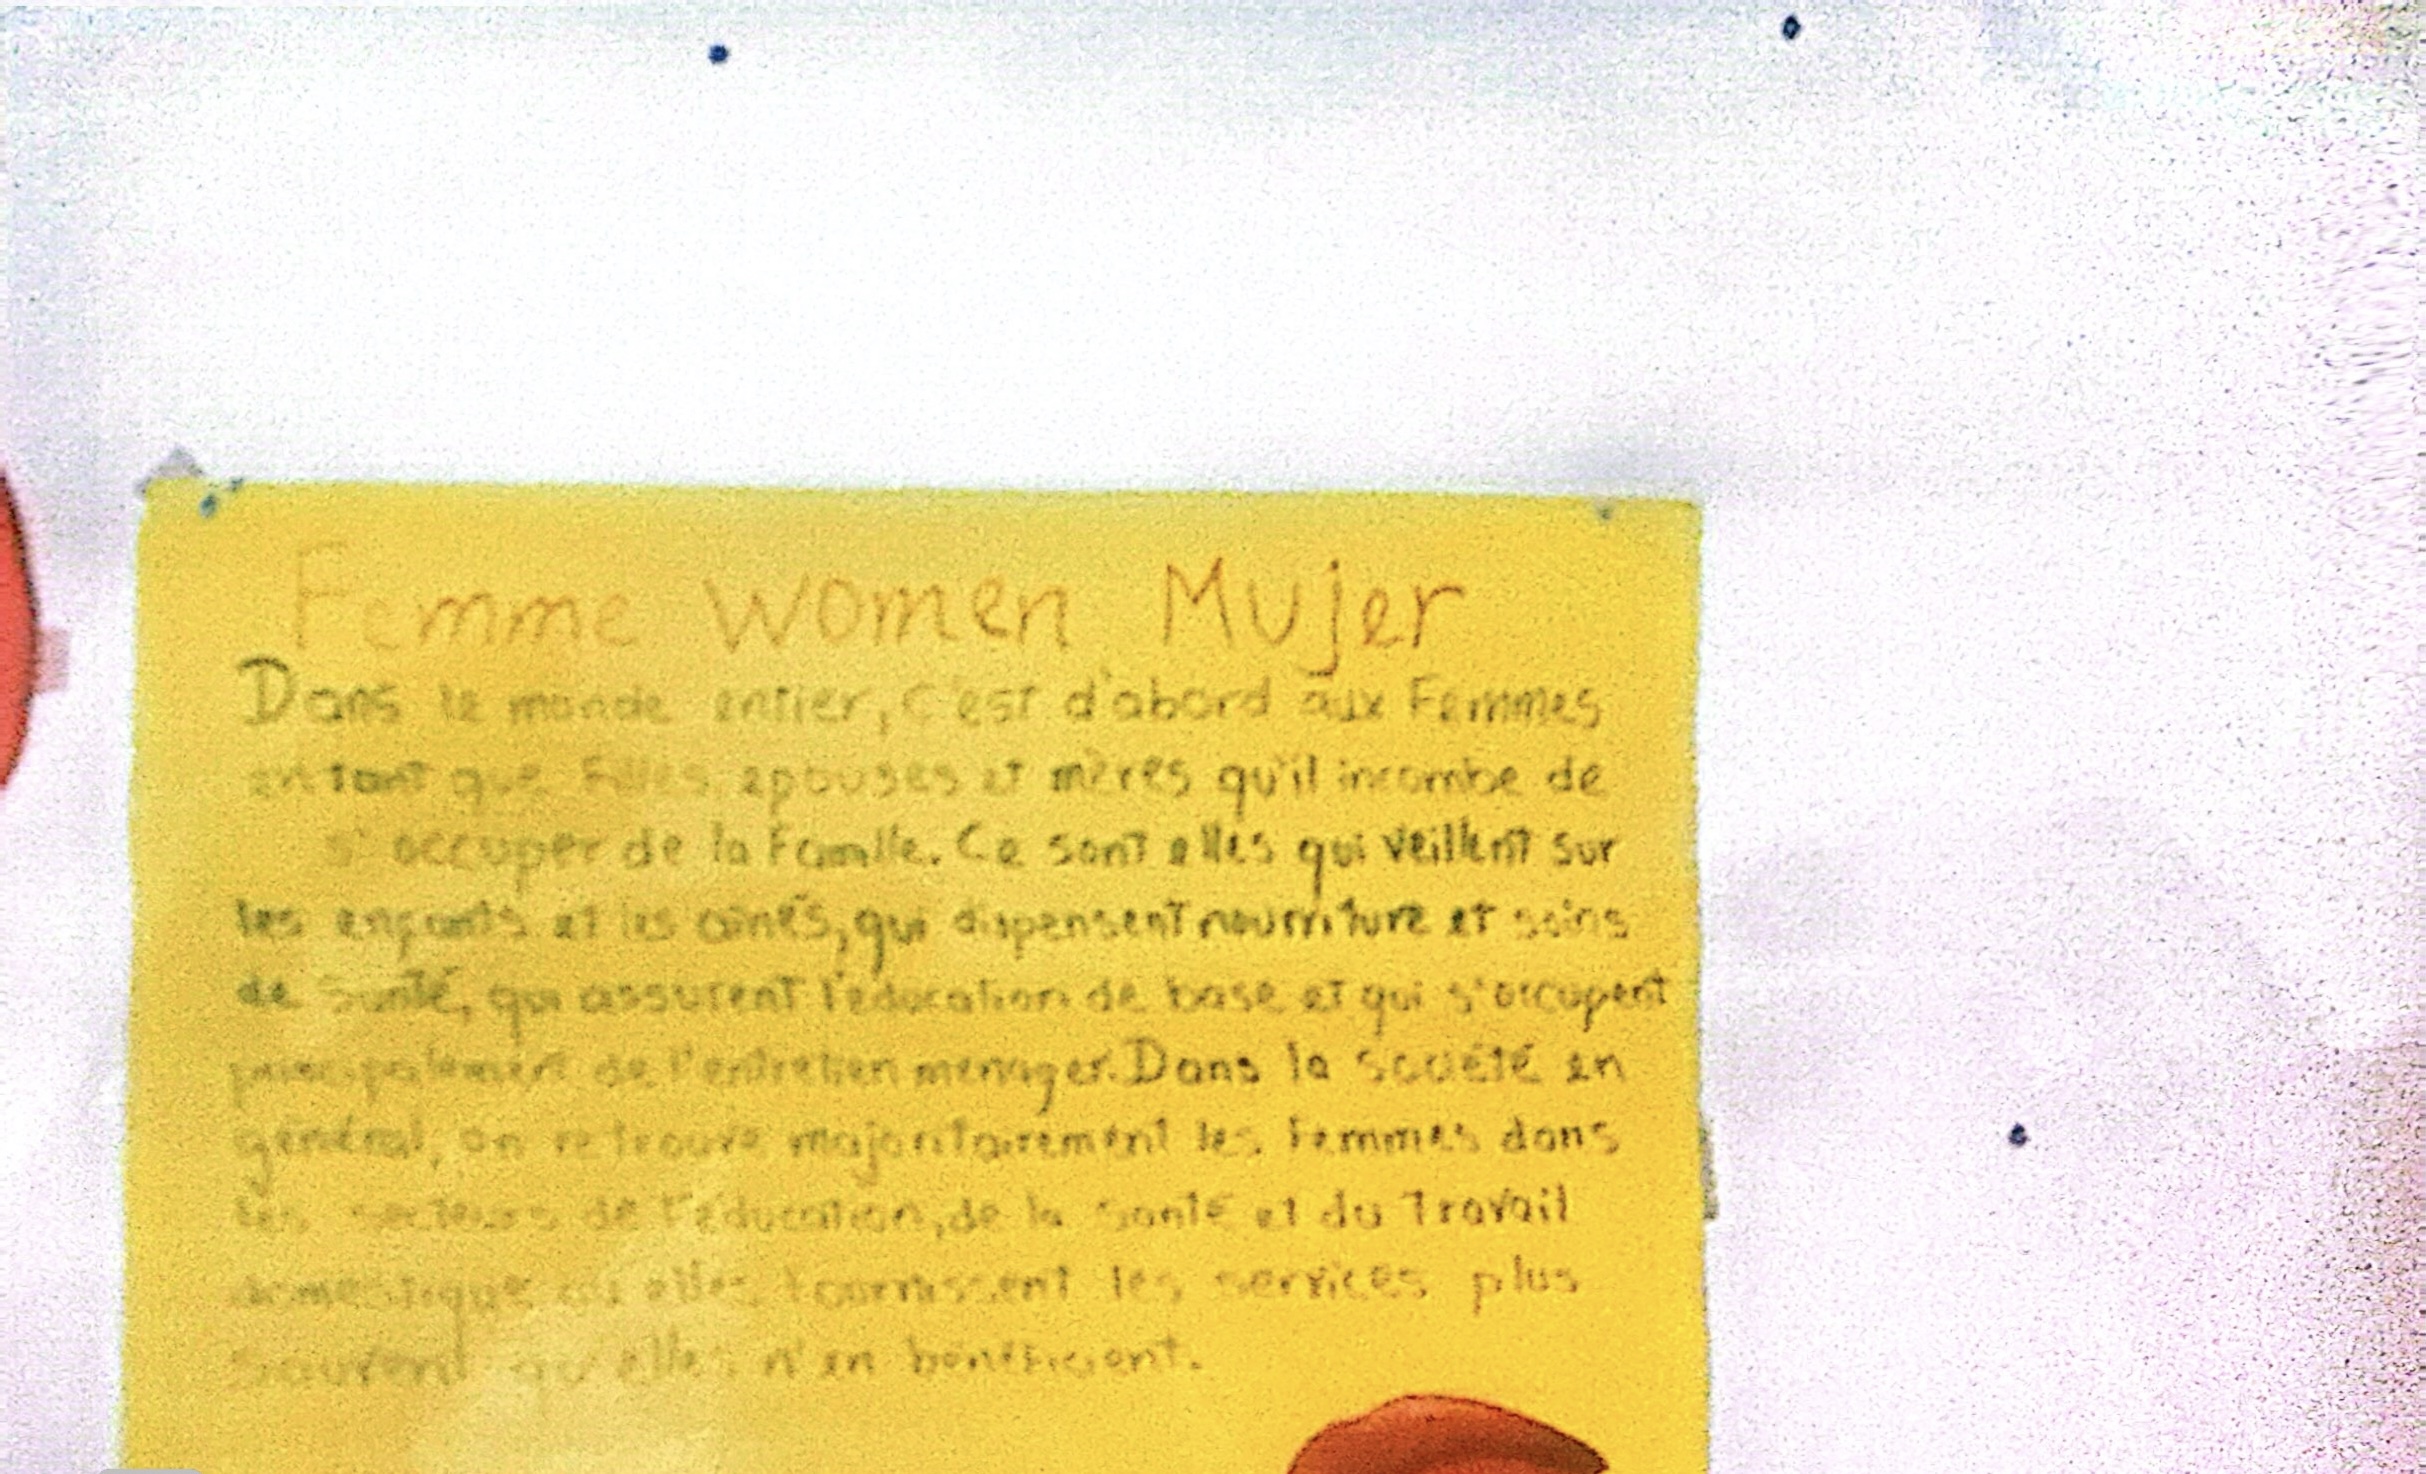 Femme Women Mujer
Dans le monde entier, c'est d'abord aux Femmes
en tant que Filles epouses et mères qu'il incombe de
s'occuper de la Famille. Ce sont elles qui veillent sur
les enfants et les aînés, qui dispensent nourriture et soins
de santé, qui assurent l'éducation de base et qui s'occupent
principalement de l'entretien menager. Dans la société en
général, on retrouve majoritairement les Femmes dans
les secteurs de l'éducation, de la santé et du Travail
domestique où elles fournissent les services plus
souvent qu'elles n'en bénéficient.